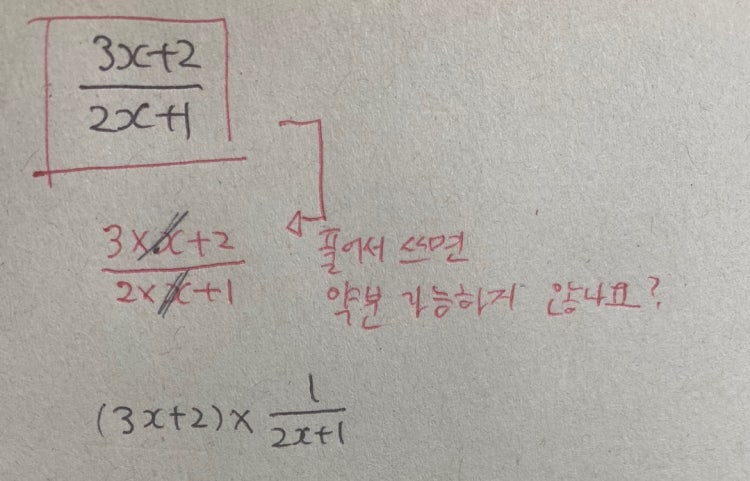 3x+2
2x+1
3×x+2
2×x+1
풀어서 쓰면
약분 가능하지 않나요?
(3x+2)× 1/2x+1